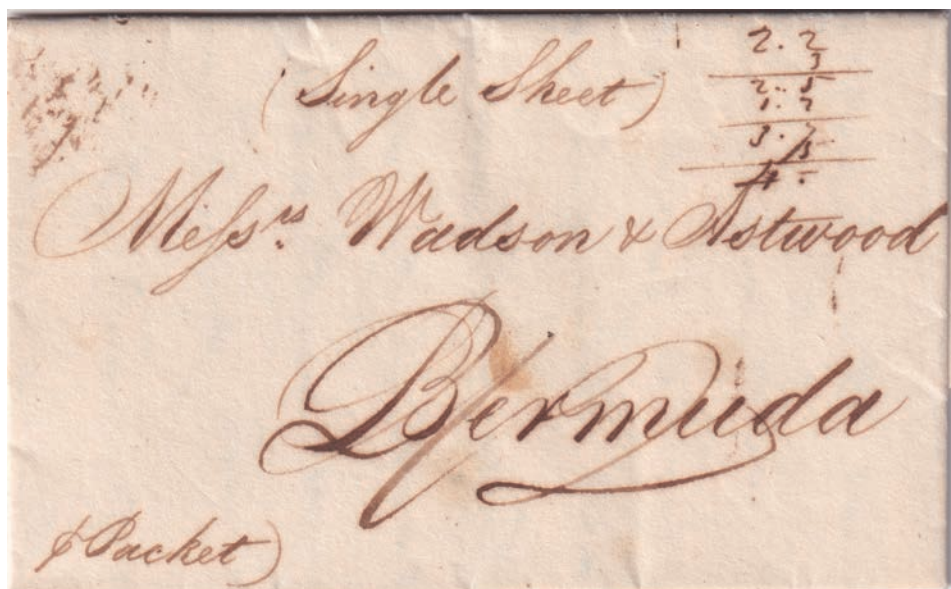 (Single Sheet)
2. 2
3
2. 5
1. 2
3. 7
5
4. -
Messrs. Wadson & Astwood
Bermuda
⅌ Packet)